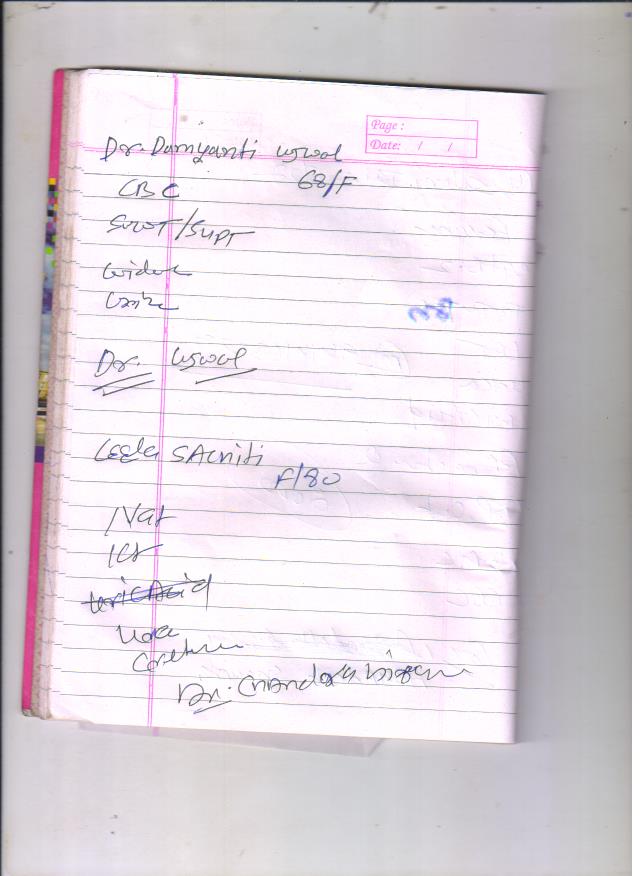 Page :
Date: / /
Dr. Damyanti Ujwal
68/F
CBC
SGOT/SGPT
Widal
Urine
Dr. Ujwal
Leela
F/80
Na+
K+
Uric Acid
Urea
Dr. Chandra